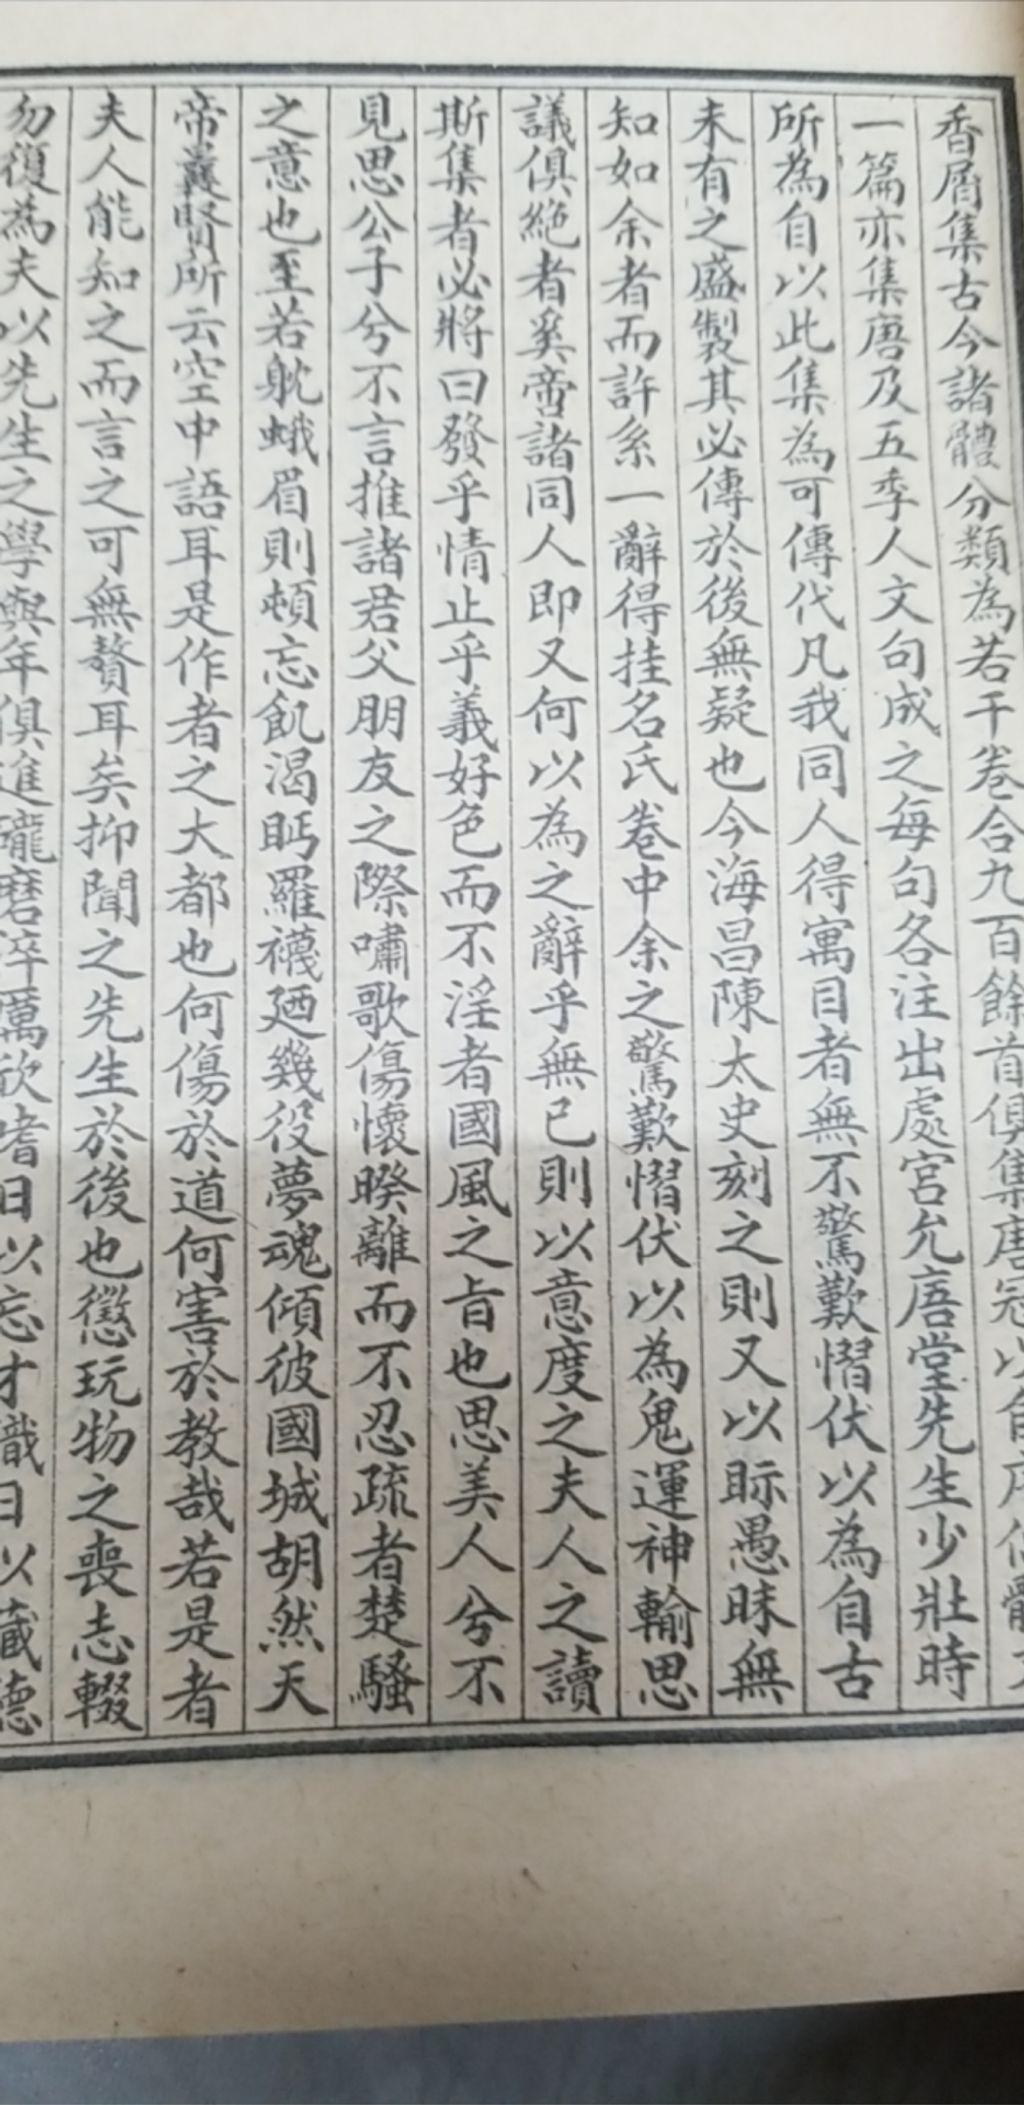 香屑集古今諸體分類為若干卷合九百餘首俱集唐冠以自序
一篇亦集唐及五季人文句成之每句各注出處宮允㕃堂先生少壯時
所為自以此集為可傳代凡我同人得寓目者無不驚歎慴伏以為自古
未有之盛製其必傳於後無疑也今海昌陳太史刻之則又以眎愚昧無
知如余者而許系一辭得挂名氏卷中余之驚歎慴伏以為鬼運神輸思
議俱絶者奚啻諸同人即又何以為之辭乎無已則以意度之夫人之讀
斯集者必將曰發乎情止乎義好色而不淫者國風之旨也思美人兮不
見思公子兮不言推諸君父朋友之際嘯歌傷懷暌離而不忍疏者楚騷
之意也至若躭蛾眉則頓忘飢渴眄羅襪廼幾役夢魂傾彼國城胡然天
帝曩賢所云空中語耳是作者之大都也何傷於道何害於教哉若是者
夫人能知之而言之可無贅耳矣抑聞之先生於後也懲玩物之喪志輟
勿復為夫以先生之學與年俱進礲磨淬厲欣嗜日以忘才識日以藏德